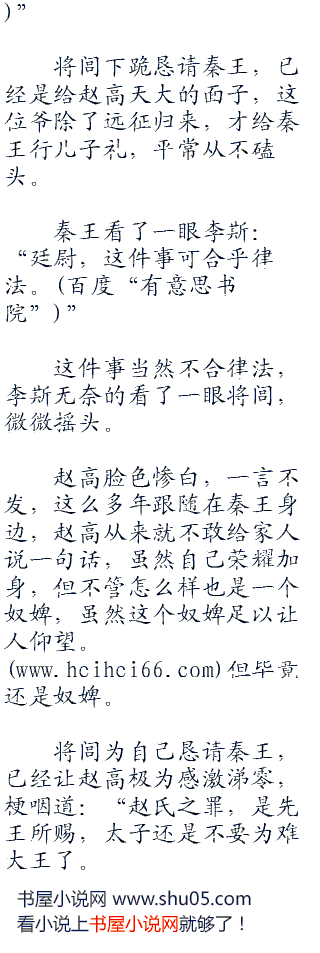 )”
将闾下跪恳请秦王，已
经是给赵高天大的面子，这
位爷除了远征归来，才给秦
王行儿子礼，平常从不磕
头。
秦王看了一眼李斯：
“廷尉，这件事可合乎律
法。(百度“有意思书
院”)”
这件事当然不合律法，
李斯无奈的看了一眼将闾，
微微摇头。
赵高脸色惨白，一言不
发，这么多年跟随在秦王身
边，赵高从来就不敢给家人
说一句话，虽然自己荣耀加
身，但不管怎么样也是一个
奴婢，虽然这个奴婢足以让
人仰望。
(www.hcihci66.com)但毕竟
还是奴婢。
将闾为自己恳请秦王，
已经让赵高极为感激涕零，
梗咽道：“赵氏之罪，是先
王所赐，太子还是不要为难
大王了。
书屋小说网 www.shu05.com
看小说上书屋小说网就够了！